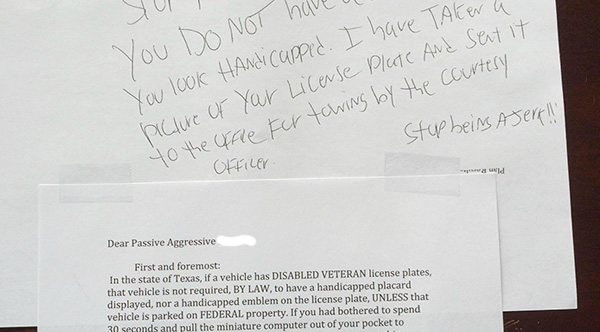 You DO NOT have
You look HANdicapped. I have TAKen a
picture of Your License Plate And Sent it
to the office For towing by the courtesy
OFFicer.
Stop being A Jerk!!
Dear Passive Aggressive
First and foremost:
In the state of Texas, if a vehicle has DISABLED VETERAN license plates,
that vehicle is not required, BY LAW, to have a handicapped placard
displayed, nor a handicapped emblem on the license plate, UNLESS that
vehicle is parked on FEDERAL property. If you had bothered to spend
30 seconds and pull the miniature computer out of your pocket to